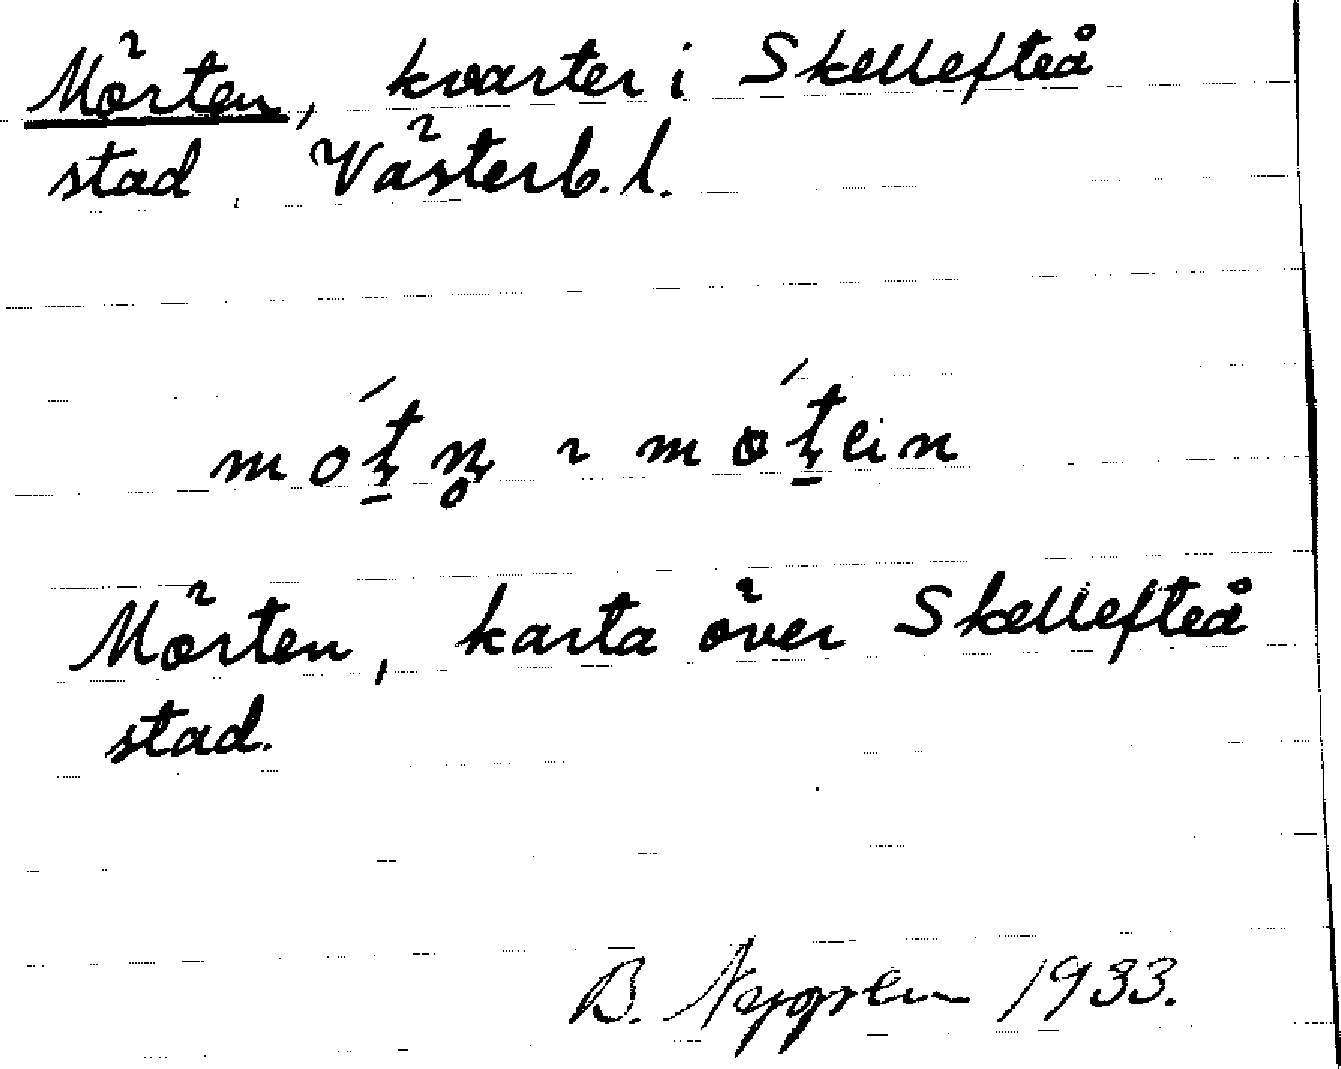 Mörten, kvarter i Skellefteå
stad. Västerb. l.
Mörten, karta över Skellefteå
stad.
B. Nygren 1933.